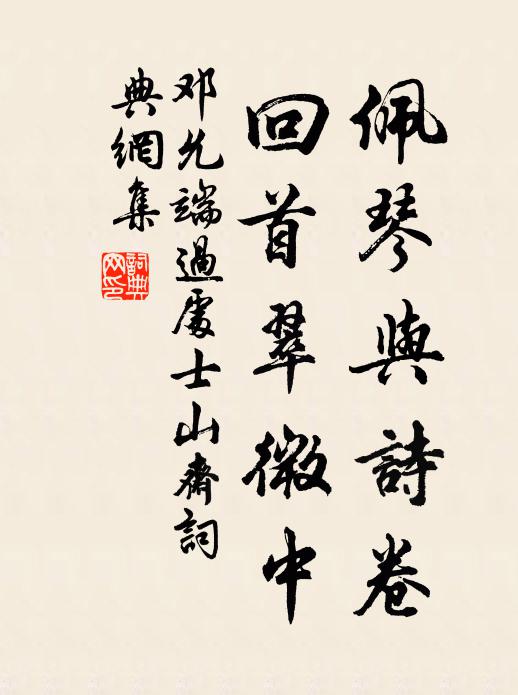 佩琴與詩卷
回首翠微中
邓允端過處士山齋詞
典網集
詞典
网印